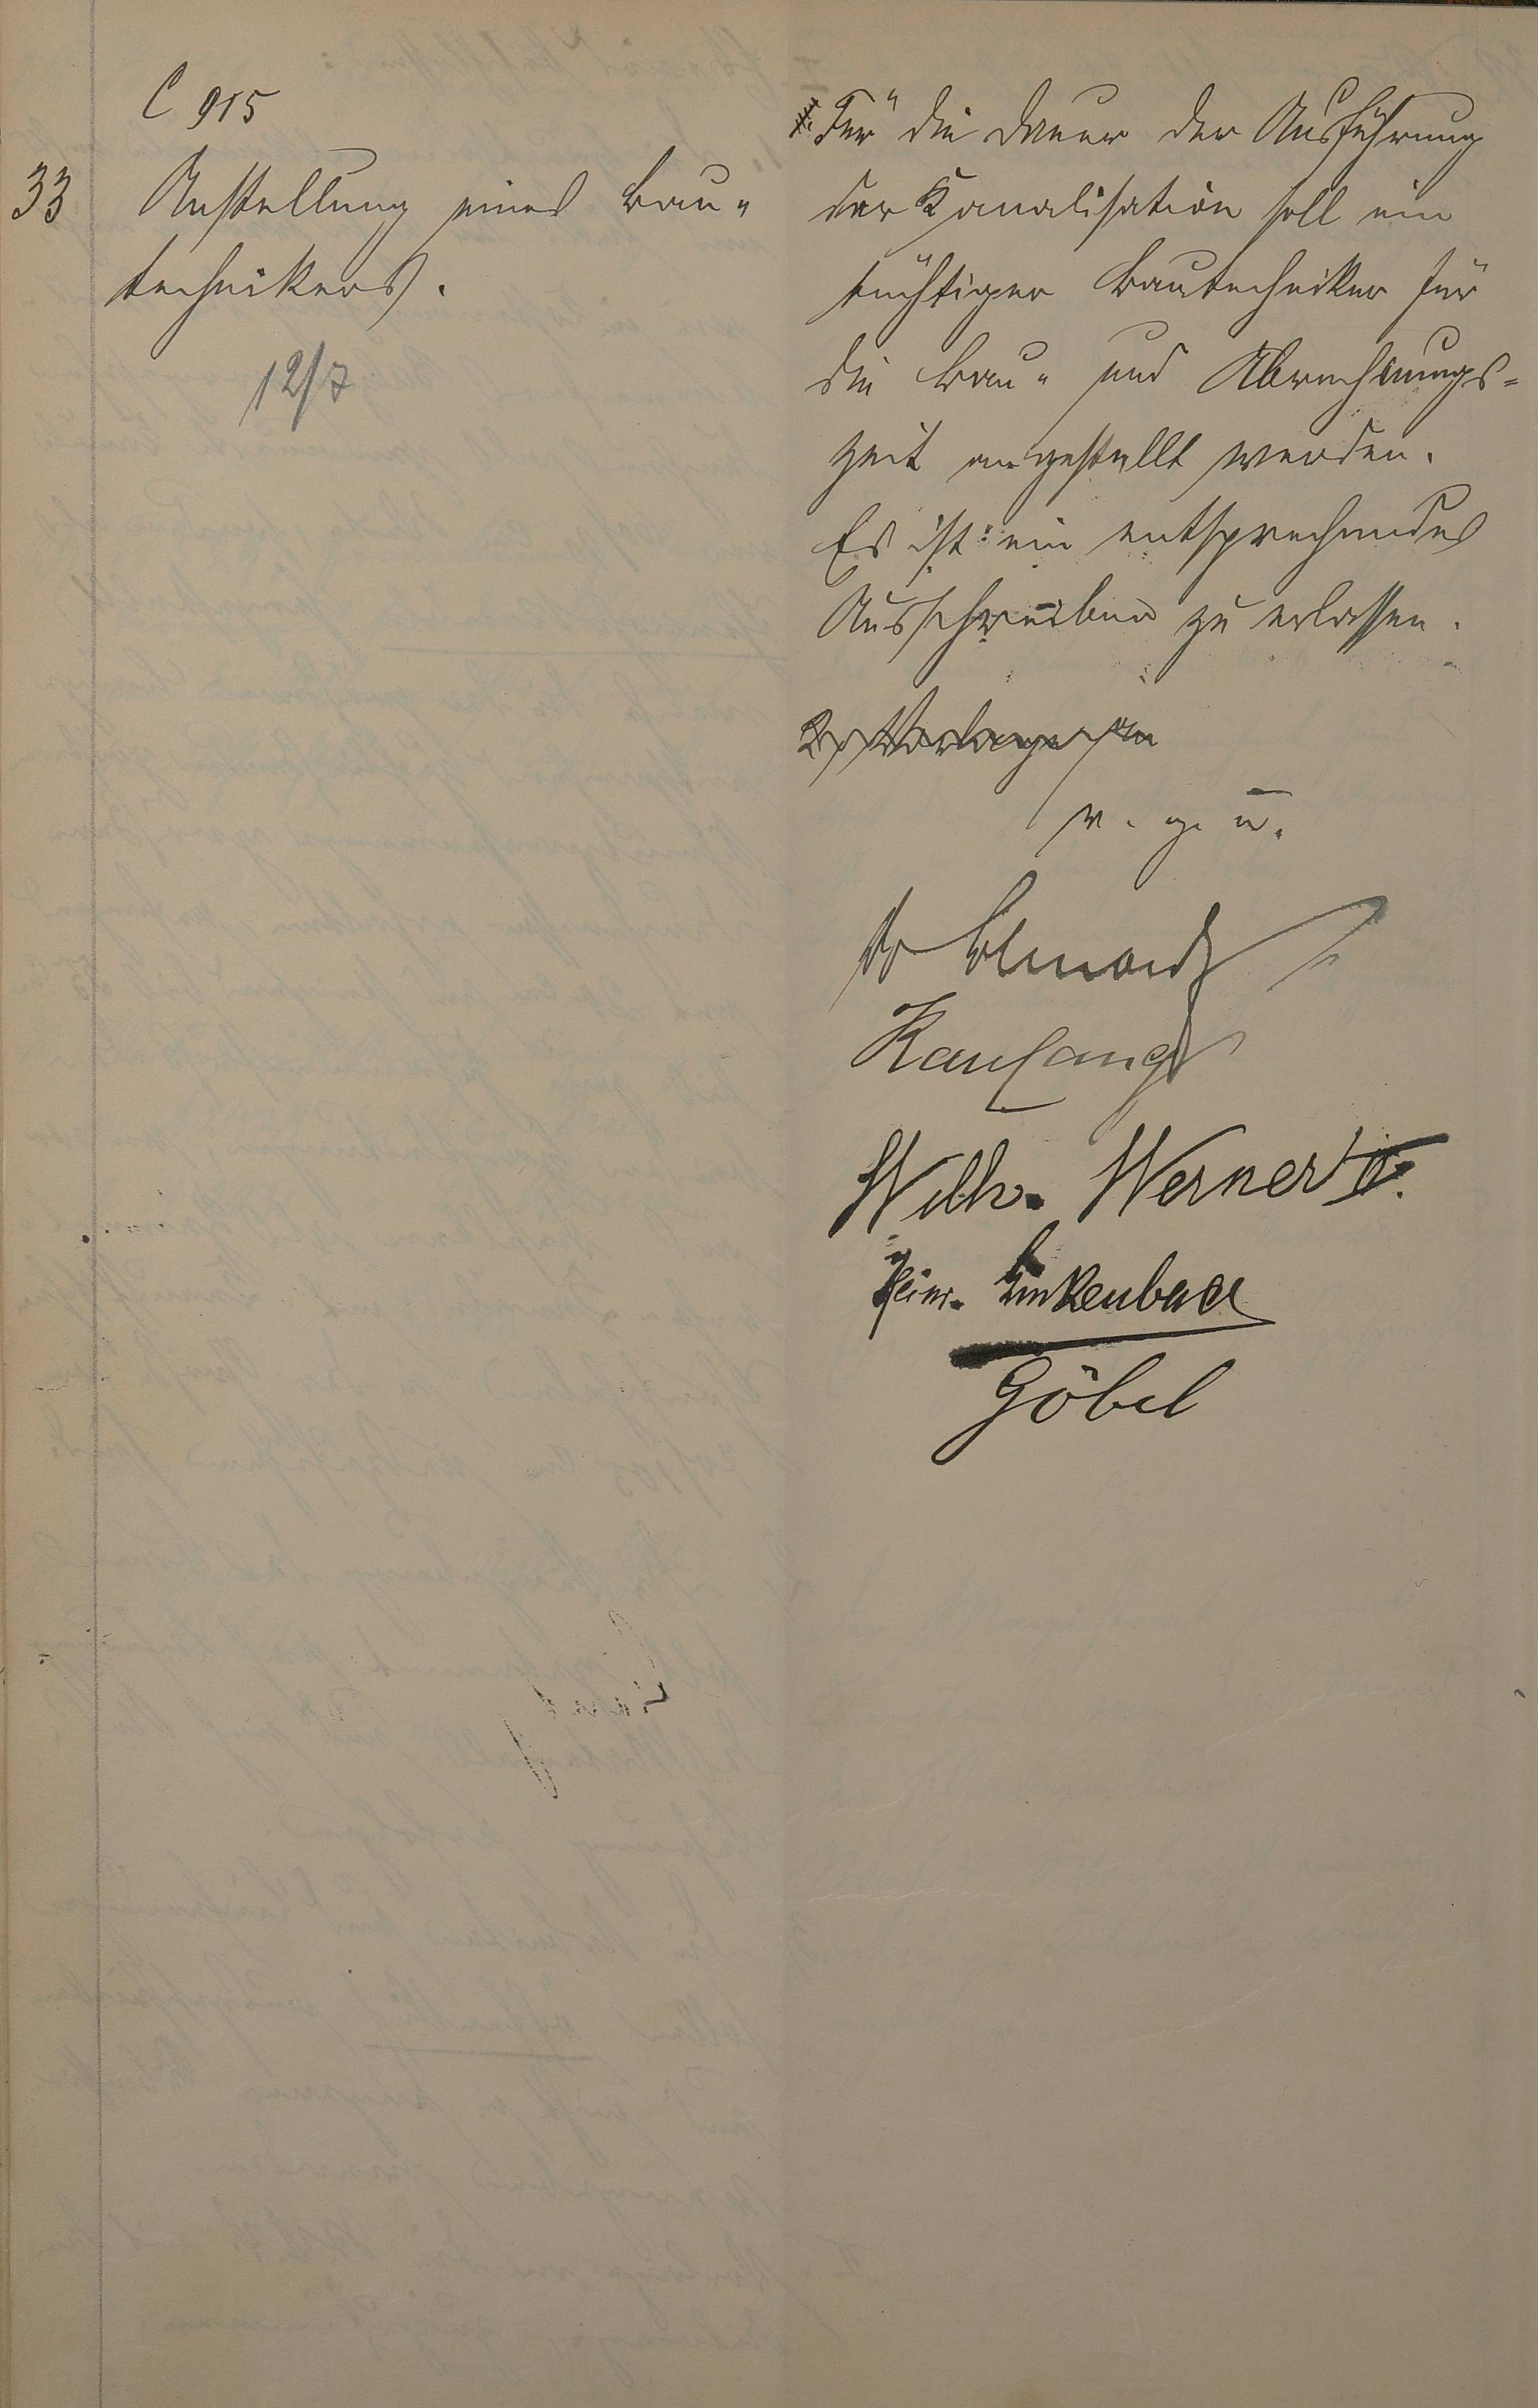 C 915
33 Anstellung eines Bau-
technikers.
12/7
Für die Dauer der Ausführung
der Kanalisation soll ein
tüchtiger Bautechniker für
die Bau- und Abrechnungs-
zeit angestellt werden.
Es ist ein entsprechendes
Ausschreiben zu erlassen.
2) Vorlage an
v. g. u.
Dr
Wilh. Werner
Heinr. Linkenbach
Göbel